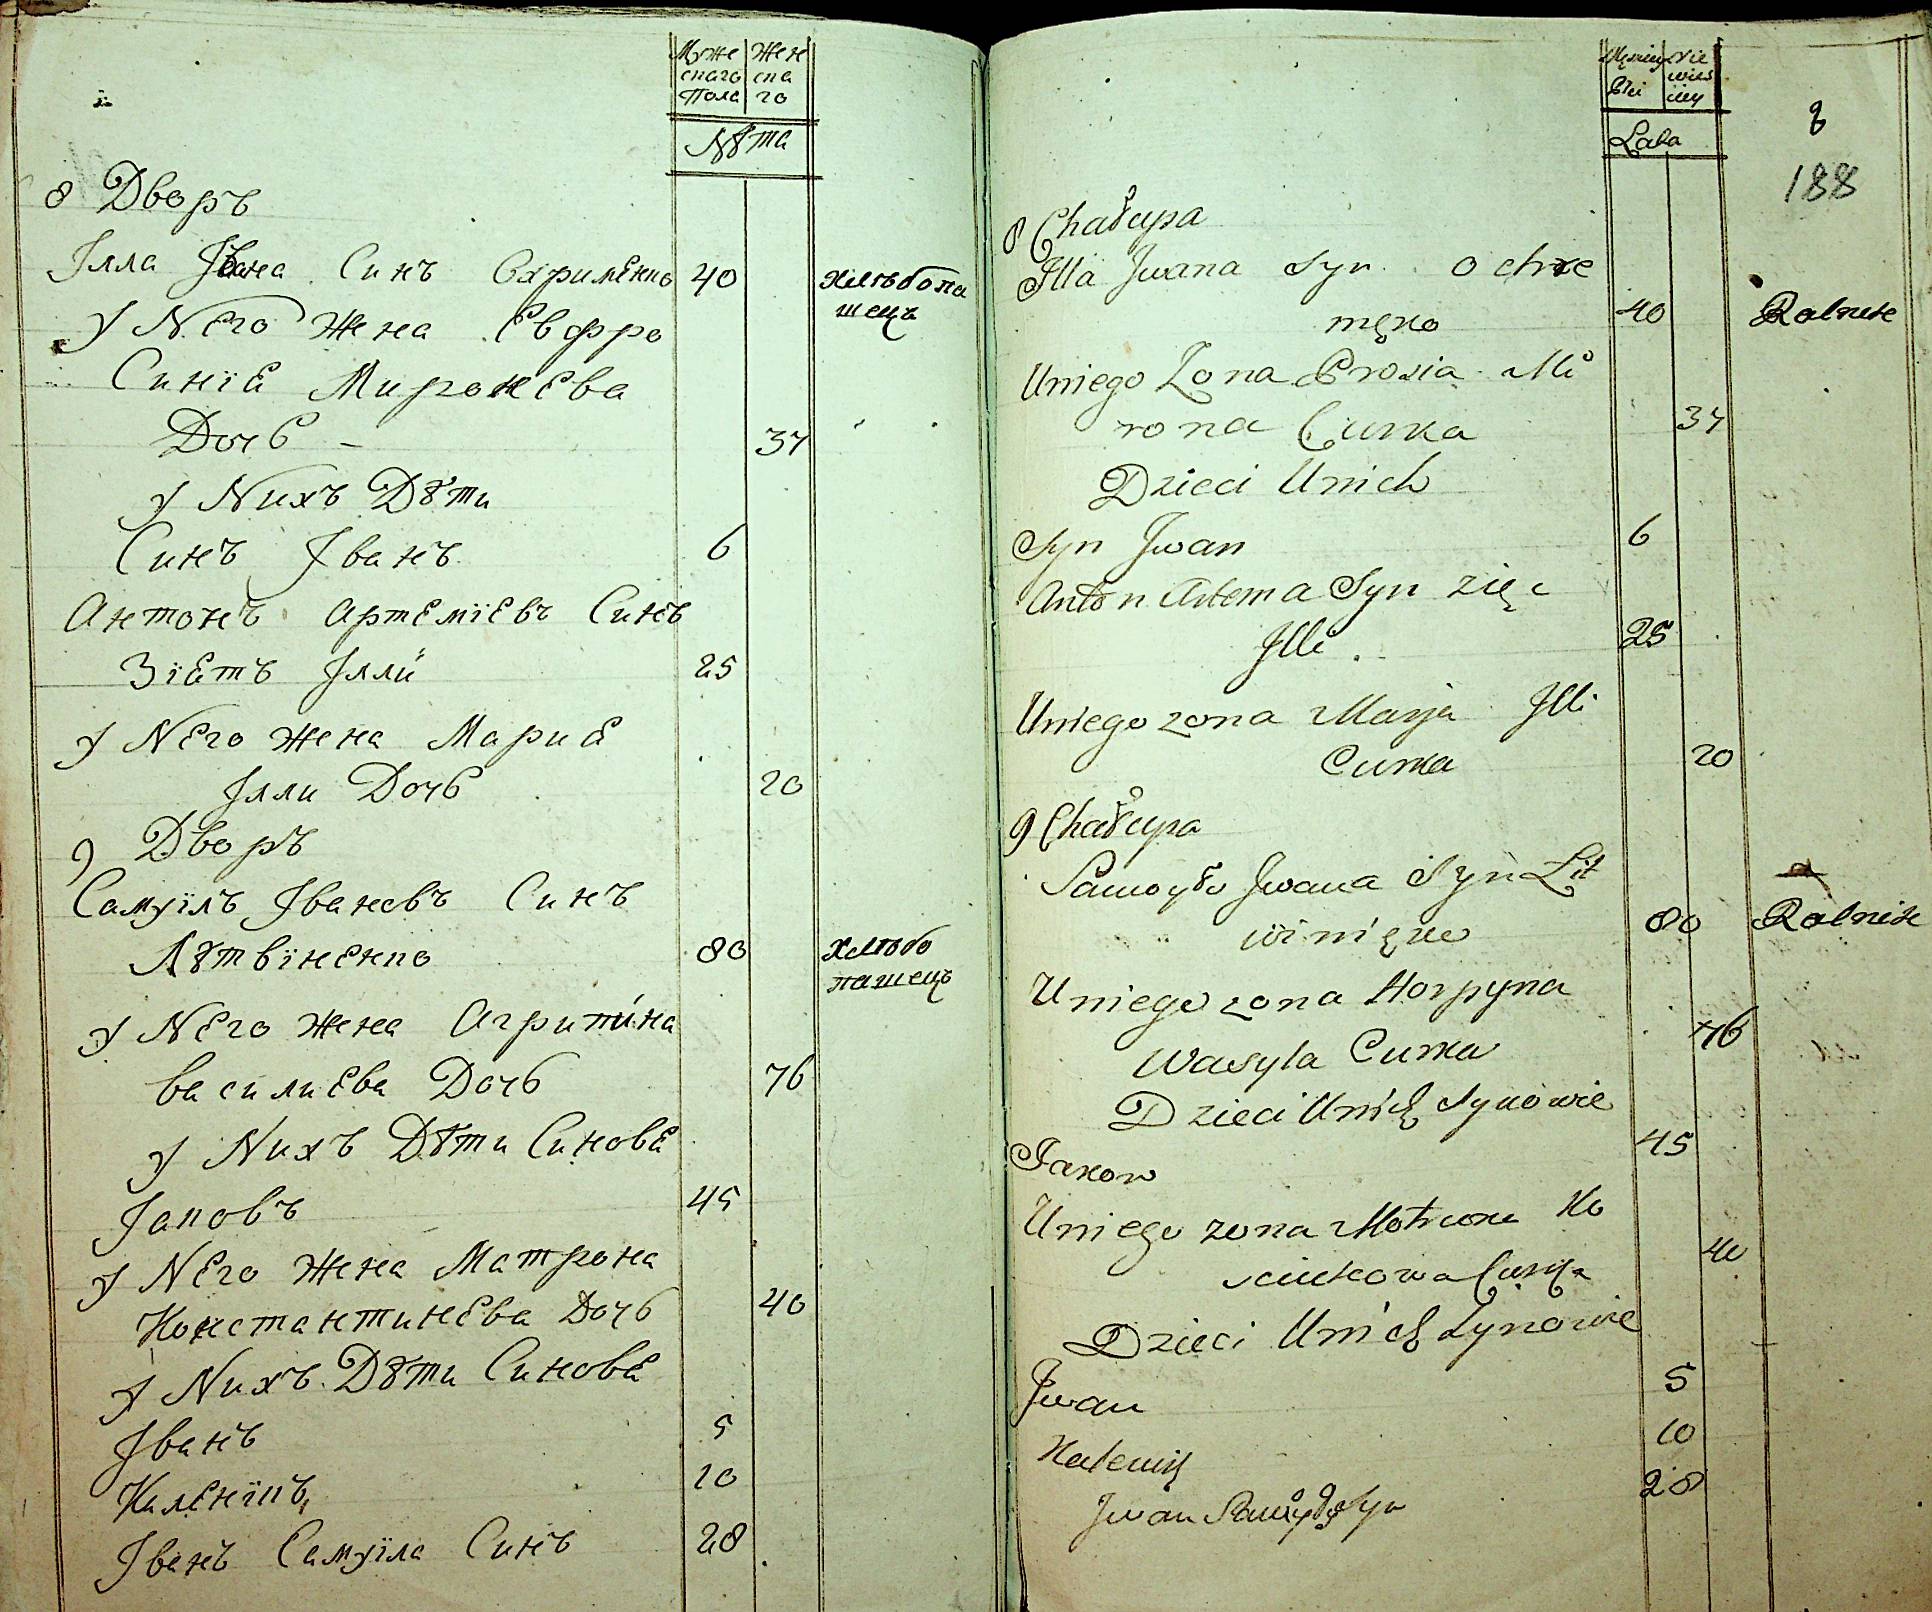 Муже Жен
скаго ска
Пола го
Лѣта
8 Дворъ
Ілла Івана Синъ Охрименко 40 Хлѣбопа
шецъ
У Него Жена Евфро
Синїѣ Миронева
Дочь 37
У Нихъ Дѣти
Синъ Іванъ 6
Антонъ Артемїевъ Синъ
Зїеть Іллй 25
У Него Жена Марие
Ілли Дочь 20
9 Дворъ
Самуїлъ Івановъ Синъ
Лѣтвїненко 80 Хлѣбо
пашецъ
У Него Жена Агрипина
василиева Дочь 76
У Нихъ Дѣти Синове
Іаковъ 45
У Него Жена Матрона
Константинева Дочь 40
У Нихъ Дѣти Синове
Іванъ 5
Каленїкъ 10
Іванъ Самуїла Синъ 28
Lata
8
188
8 Chałupa
Jlla Jwana Syn Ochre
męko 40 Rolnik
Uniego Zona Prosia Mi
rona Curka 37
Dzieci Unich
Syn Jwan 6
Anton Artema Syn zięc
Jlli 25
Uniego zona Marja Jlli
Curka 20
9 Chałupa
Samoyło Jwana Syn Lit
winięko 80 Rolnik
Uniego zona Horpyna
Wasyla Curka 76
Dzieci Unich Synowie
Jakow 45
Uniego zona Motrona Ko
Curka 40
Dzieci Unich Synowie
Jwan 5
Kalenik 10
Jwan Samoyły Syn 28